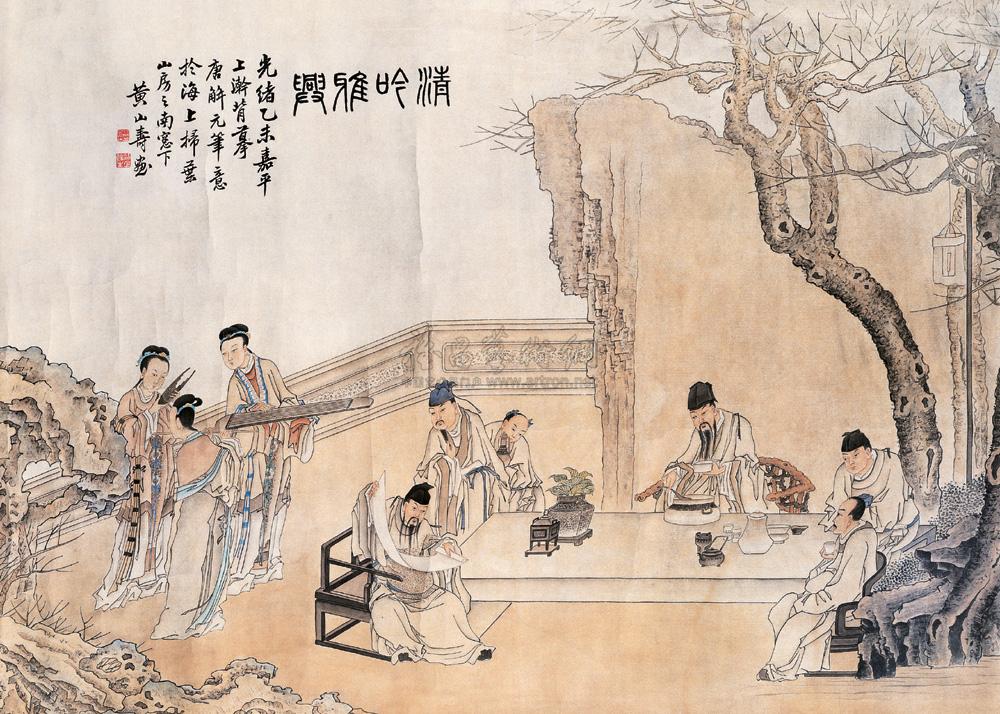 清吟雅興
光緒乙未嘉平
上澣背摹
唐解元筆意
於海上掃葉
山房之南窓下
黃山壽畫
www.artron.net